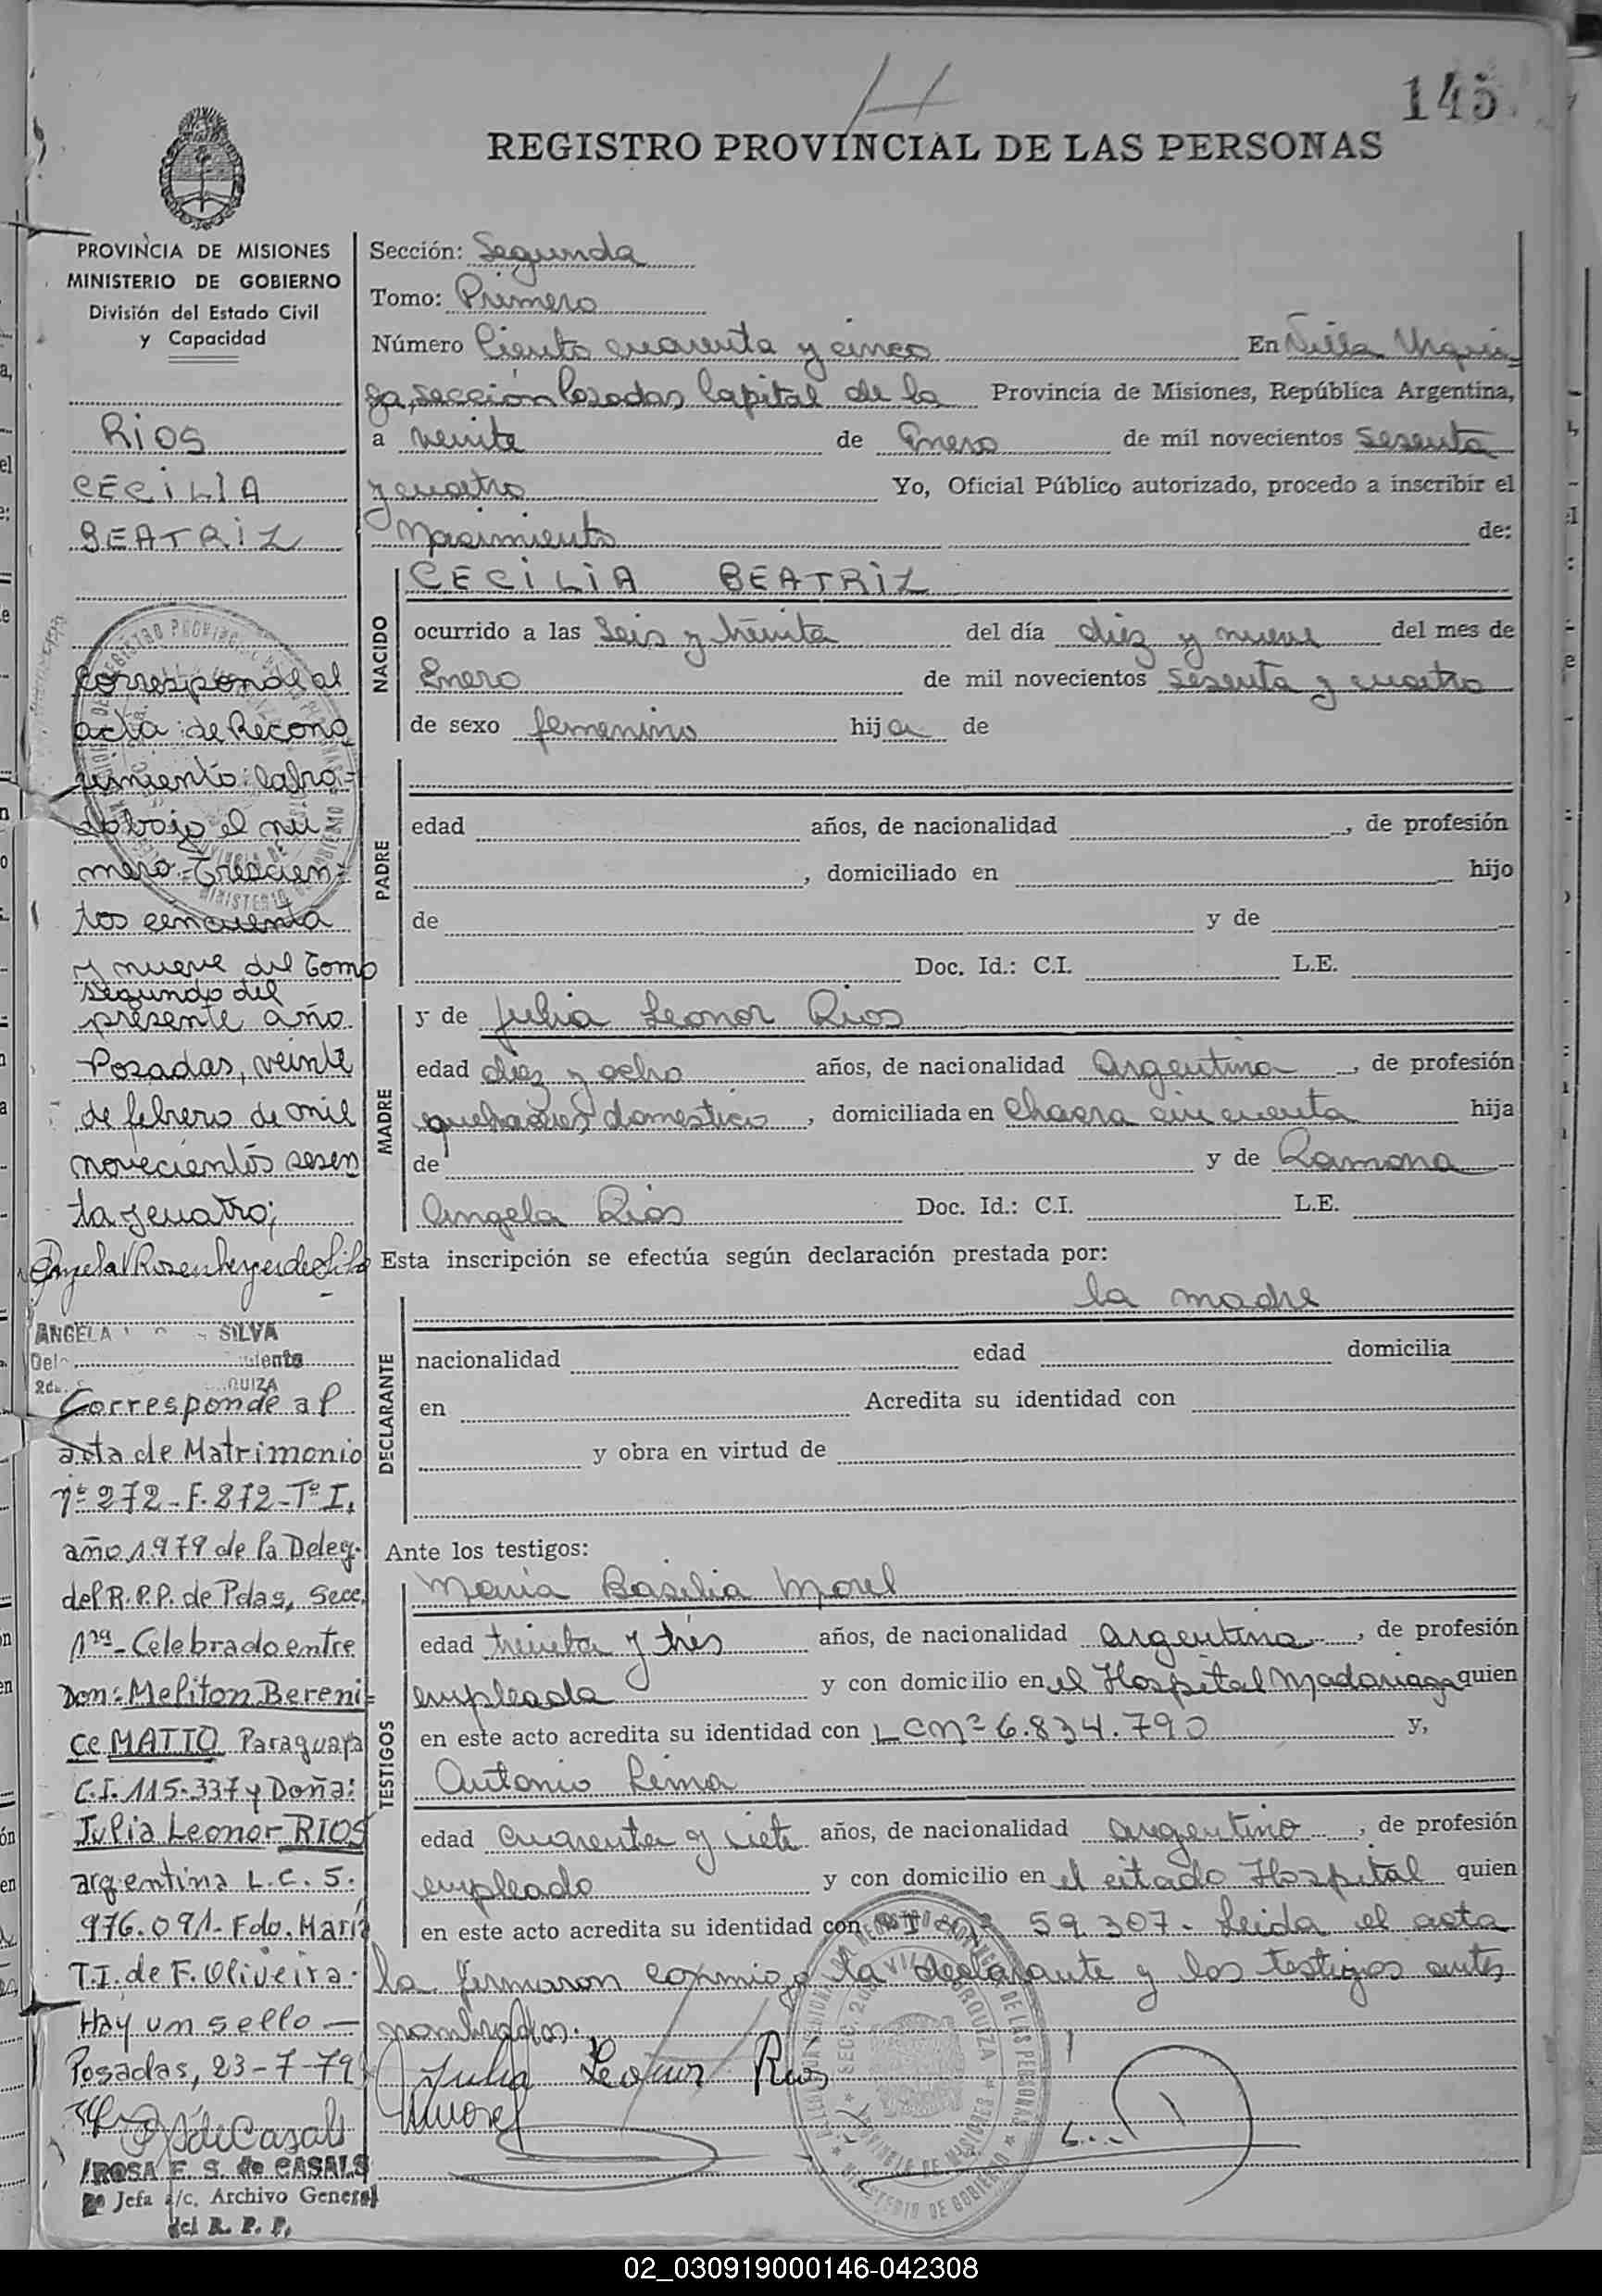 145
REGISTRO PROVINCIAL DE LAS PERSONAS
PROVINCIA DE MISIONES
MINISTERIO DE GOBIERNO
División del Estado Civil
y Capacidad
RIOS
CECILIA
BEATRIZ
Corresponde al
acta de Recono
cimiento labra=
do bajo el nu
mero = Trescien=
tos cincuenta
y nueve del Tomo
segundo del
presente año
Posadas, veinte
de febrero de mil
novecientos sesen
ta y cuatro;
ANGELA SILVA
Corresponde al
acta de Matrimonio
nº 272 - F. 272 - Tº I,
año 1979 de la Deleg.
del R.P.P. de Pdas, Secc.
1ra - Celebrado entre
Don: Meliton Bereni=
ce MATTO Paraguaya
C.I. 115.337 y Doña:
Julia Leonor RIOS
argentina L.C. 5.
976.091. Fdo. María
T.I. de F. Oliveira.
Hay un sello —
Posadas, 23-7-79
ROSA E. S. de CASALS
Jefa a/c. Archivo General
del R. P. P.
Sección: Segunda
Tomo: Primero
Número Ciento cuarenta y cinco En Villa Urqui=
za, sección Posadas Capital de la Provincia de Misiones, República Argentina,
a veinte de Enero de mil novecientos sesenta
y cuatro Yo, Oficial Público autorizado, procedo a inscribir el
Nacimiento de:
NACIDO
CECILIA BEATRIZ
ocurrido a las Seis y treinta del día diez y nueve del mes de
Enero de mil novecientos sesenta y cuatro
de sexo femenino hija de
PADRE
edad años, de nacionalidad , de profesión
, domiciliado en hijo
de y de
Doc. Id.: C.I. L.E.
MADRE
y de Julia Leonor Rios
edad diez y ocho años, de nacionalidad Argentina , de profesión
quehaceres domestico , domiciliada en Chacra cincuenta hija
de y de Ramona
Angela Rios Doc. Id.: C.I. L.E.
Esta inscripción se efectúa según declaración prestada por:
DECLARANTE
la madre
nacionalidad edad domicilia
en Acredita su identidad con
y obra en virtud de
Ante los testigos:
TESTIGOS
Maria Basilia Morel
edad treinta y tres años, de nacionalidad Argentina , de profesión
empleada y con domicilio en el Hospital Madariaga quien
en este acto acredita su identidad con LC Nº 6.834.790 y,
Antonio Lima
edad cuarenta y siete años, de nacionalidad argentino , de profesión
empleado y con domicilio en el citado Hospital quien
en este acto acredita su identidad con 59.307 - Leida el acta
la firmaron conmigo la declarante y los testigos antes
nombrados.
Julia Leonor Rios
Morel
02_030919000146-042308